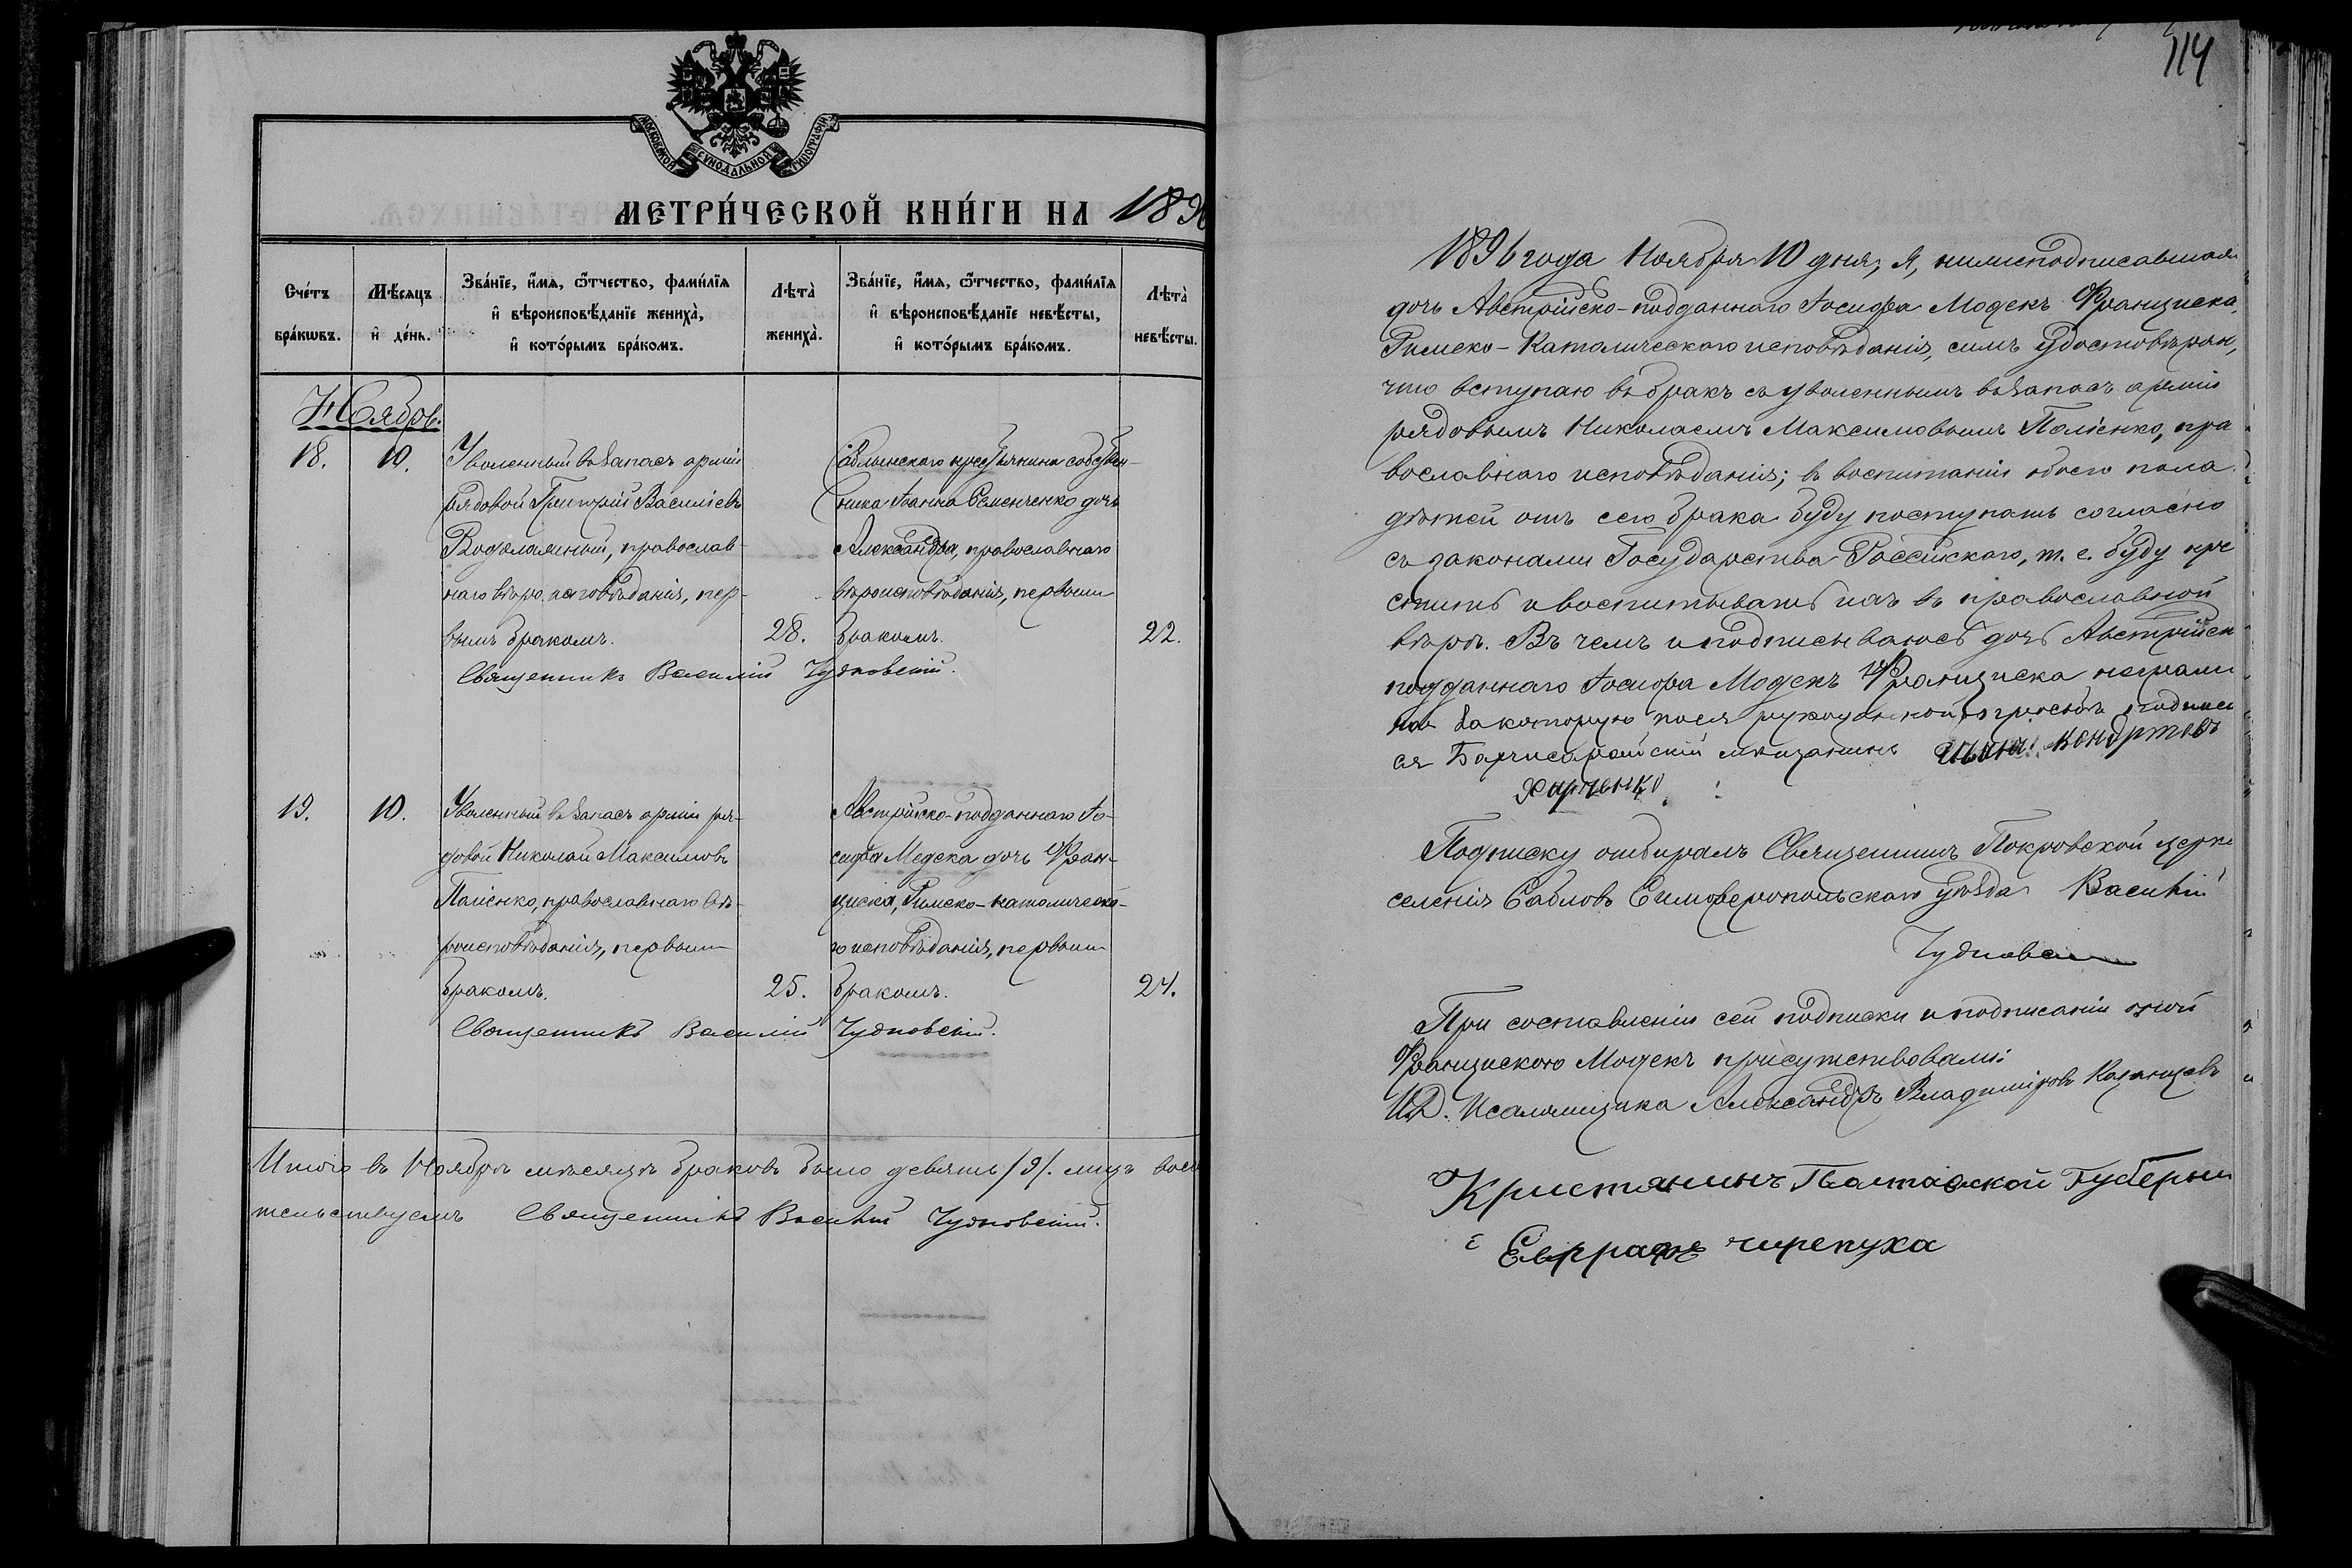 114
МОСКОВСКОЙ СУНОДАЛЬНОЙ ТИПОГРАФІИ
МЕТРИ́ЧЕСКОЙ КНИ́ГИ НА 1896
Сче́тъ бра́кѡвъ.
Мѣ́сѧцъ и҆ де́нь.
Зва́нїе, и҆́мѧ, ѻ҆́тчество, фами́лїѧ и҆ вѣроисповѣ́данїе жениха̀, и҆ кото́рымъ бра́комъ.
Лѣта̀ жениха̀.
Зва́нїе, и҆́мѧ, ѻ҆́тчество, фами́лїѧ и҆ вѣроисповѣ́данїе невѣ́сты, и҆ кото́рымъ бра́комъ.
Лѣта̀ невѣ́сты.
Ноябрь.
18. 10.
Уволенный въ запасъ арміи
рядовой Григорій Василіевъ
православ-
наго вѣроисповѣданія, пер-
вымъ бракомъ. 28.
Саблынскаго крестьянина собствен-
ника Іоанна Семенченко дочь
Александра, православнаго
вѣроисповѣданія, первым
бракомъ. 22.
Священникъ Василій Чудновскій.
19. 10.
Уволенный въ запасъ арміи ря-
довой Николай Максимовъ
Паленко, православнаго вѣ-
роисповѣданія, первым
бракомъ. 25.
Австрійско-подданнаго Іо-
сифа Медека дочь Фран-
циска, Римско-католическа-
го исповѣданія, первым
бракомъ. 24.
Священникъ Василій Чудновскій.
Итого въ Ноябрѣ мѣсяцѣ браковъ было девять /9/.
тельствуемъ Священникъ Василій Чудновскій.
1896 года Ноября 10 дня, я, нижеподписавшаяся
дочь Австрійско-подданнаго Іосифа Модекъ Франциска,
Римско-Католическаго исповѣданія, симъ удостовѣряю,
что вступаю въ бракъ съ уволеннымъ въ запасъ арміи
рядовымъ Николаемъ Максимовымъ Паленко, пра
вославнаго исповѣданія; въ воспитаніи обоего пола
дѣтей отъ сего брака буду поступать согласно
съ законами Государства Россійскаго, т. е. буду кре
стить и воспитывать ихъ въ православной
вѣрѣ. Въ чемъ и подписываюсь дочь Австрійск
подданнаго Іосифа Модекъ Франциска неграмот
ная за которую по ея рукоданной просьбѣ подписал
ся Бахчисарайскій мѣщанинъ Иванъ Кондратьевъ
Харченко
Подписку отбиралъ Священникъ Покровской церкви
селенія Саблов Симферопольскаго уѣзда Василій
Чудновскій
При составленіи сей подписки и подписаніи оной
Францискою Модекъ присутствовали:
И.Д. Псаломщика Александръ Владиміровъ Казанцевъ
Кристянинъ Полтавской Губерніи
черепуха